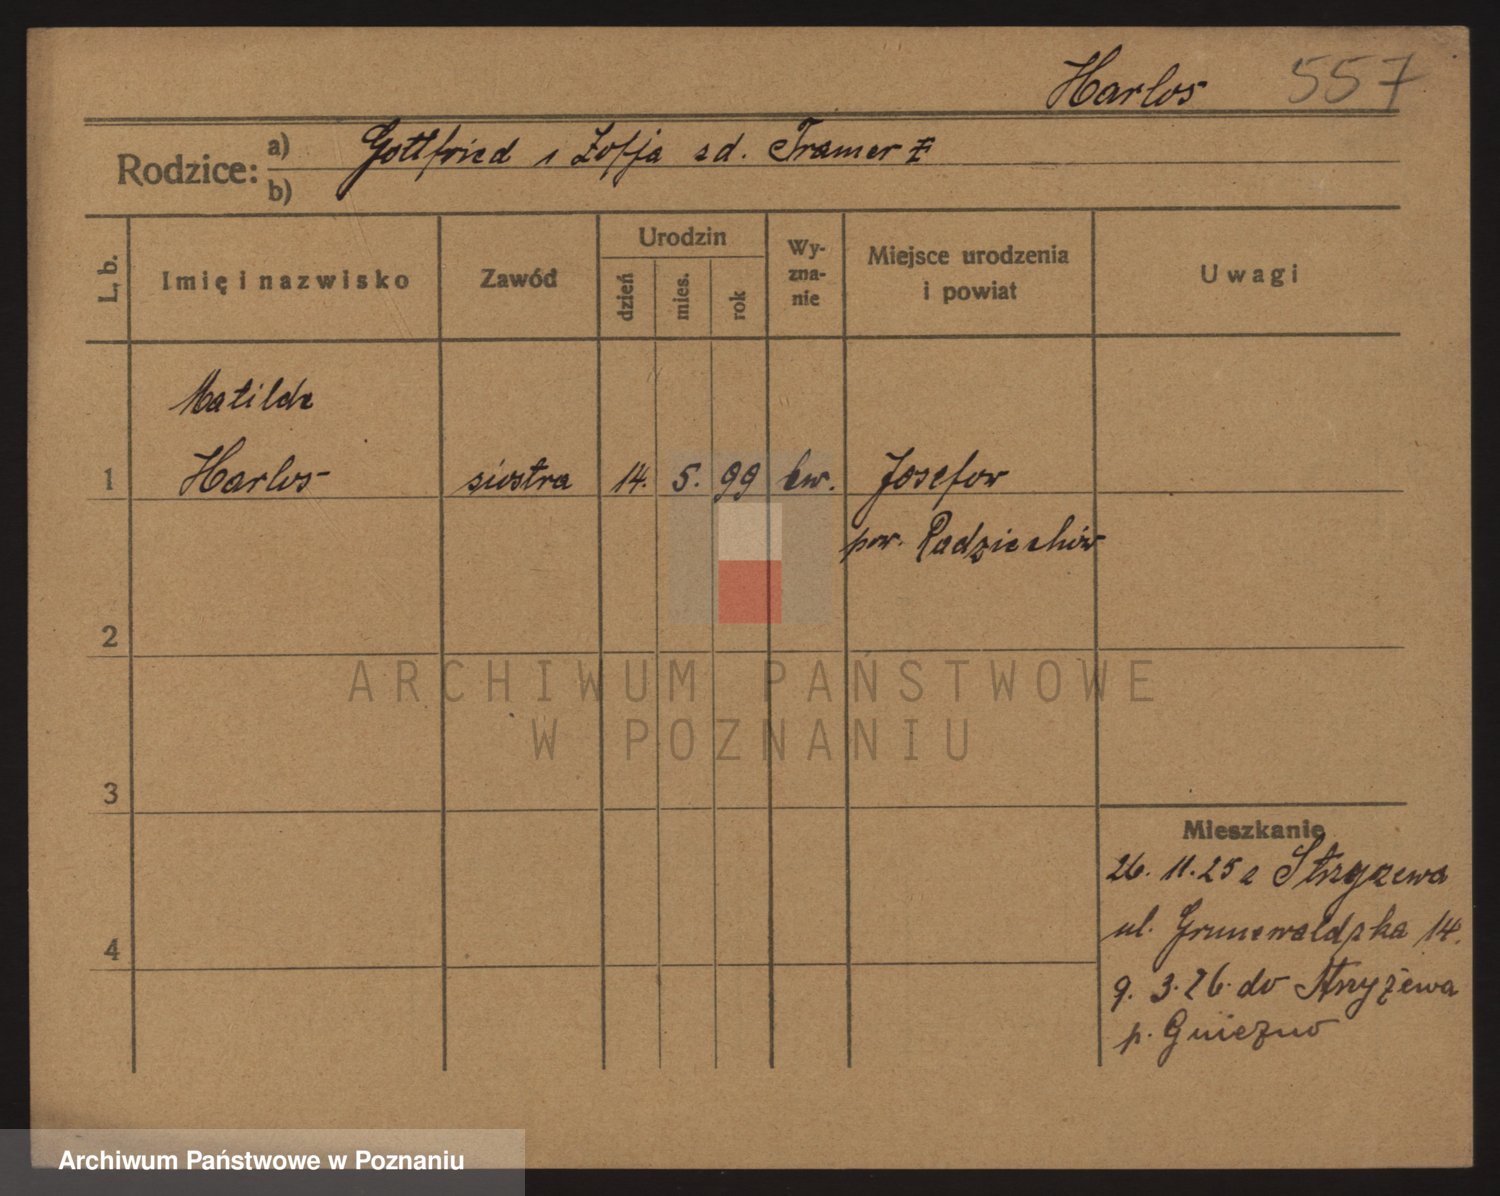 Harlos 557
Rodzice: a) Gottfried i Zofja zd. Tramer
b)
L. b. Imię i nazwisko Zawód Urodzin dzień mies. rok Wy-zna-nie Miejsce urodzenia i powiat Uwagi
Matilde
1 Harlos siostra 14. 5. 99 ew. Josefow
pow. Radziechów
2
ARCHIWUM PAŃSTWOWE
W POZNANIU
3
Mieszkanie
26. 11. 25 z Strzyzewa
ul. Grunewaldzka 14.
4
9. 3. 26. do Strzyżewa
p. Gniezno
Archiwum Państwowe w Poznaniu